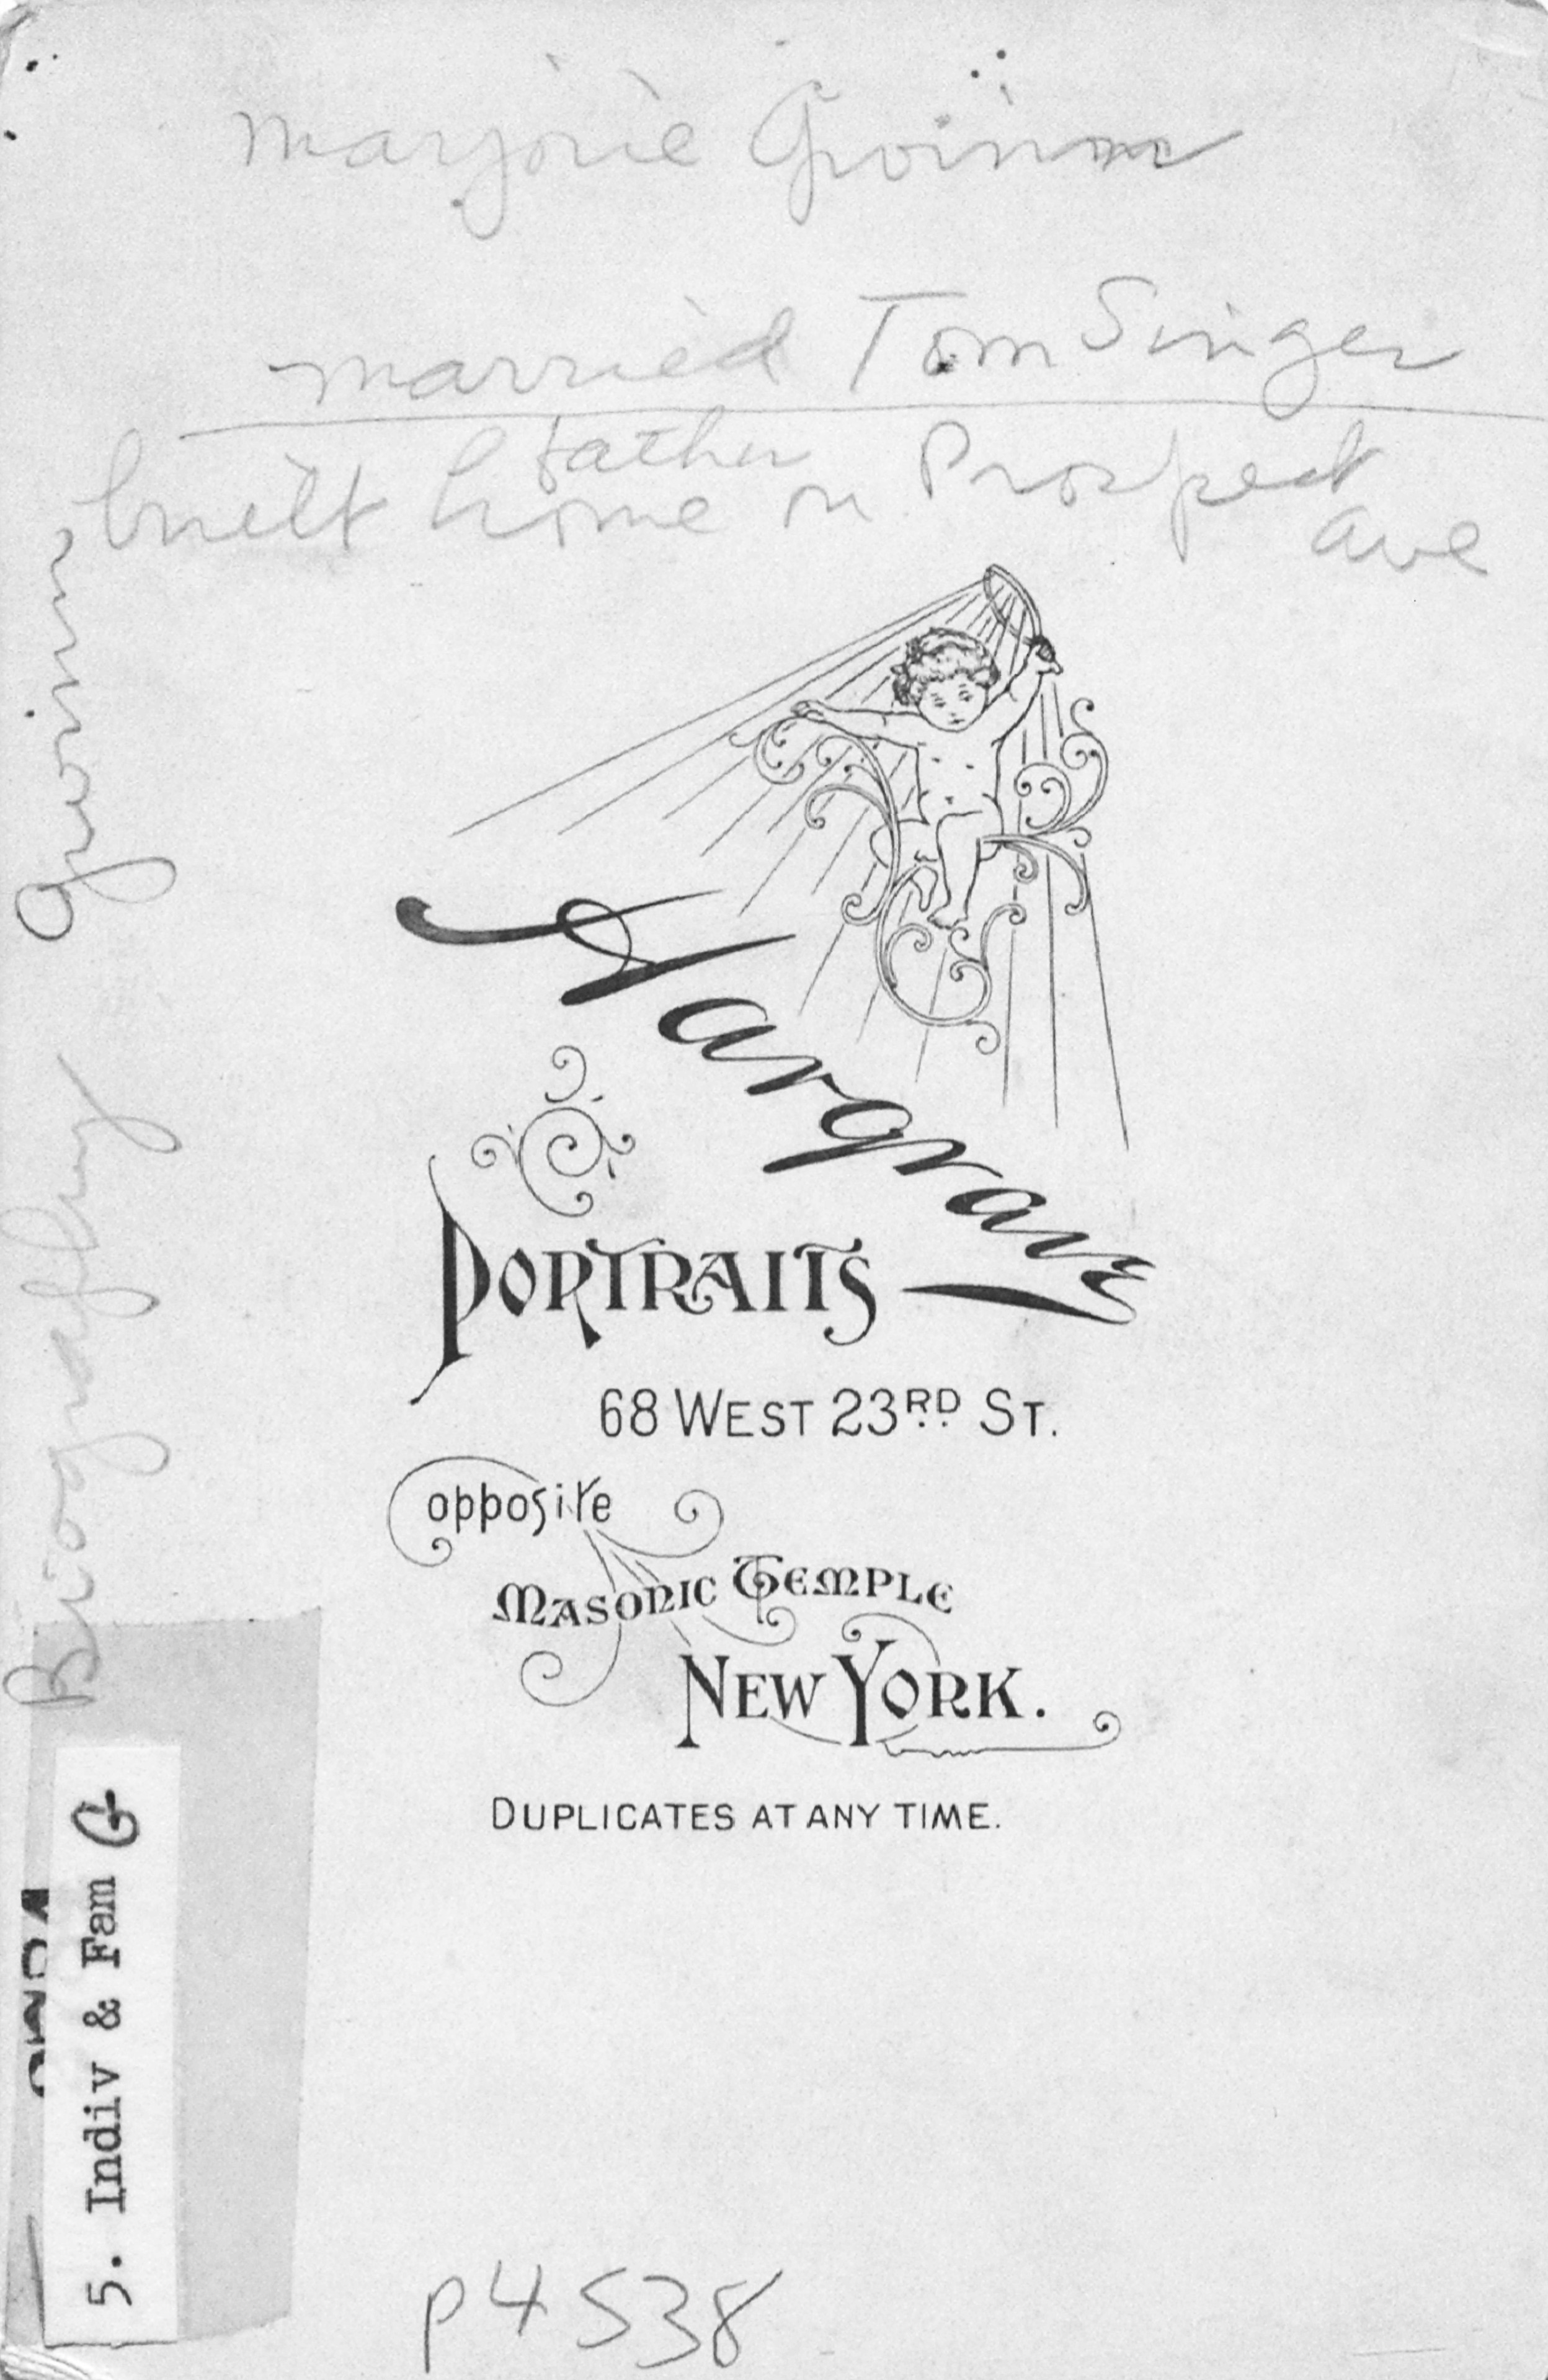 Marjorie Gwinn
married Tom Singer
father
built home on Prospect
ave
Biography Gwinn
Hargrave
PORTRAITS
68 WEST 23RD ST.
opposite
MASONIC TEMPLE
NEW YORK.
DUPLICATES AT ANY TIME.
5. Indiv & Fam G
P4538